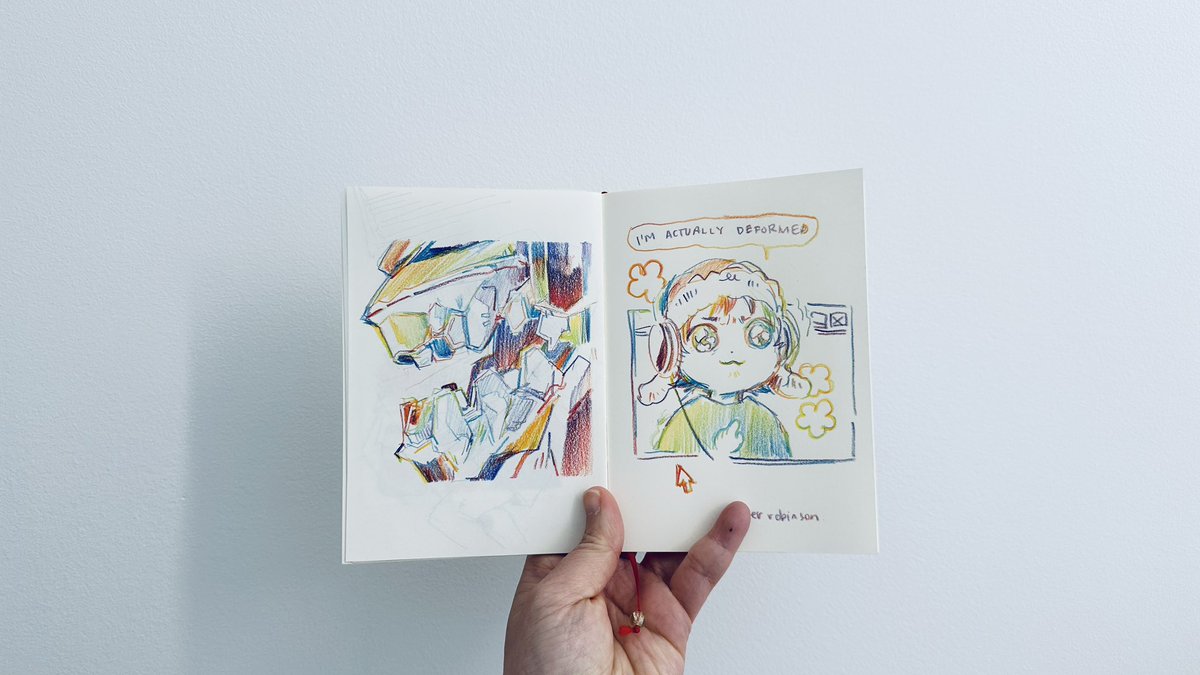 I'M ACTUALLY DEFORMED
robinson